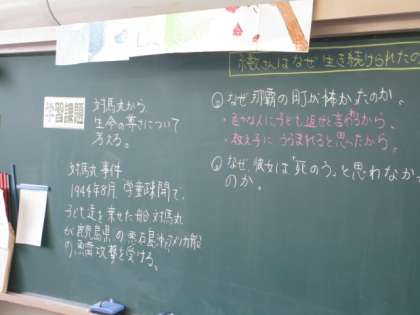 学習課題
対馬丸から
生命の尊さについて
考える。
対馬丸事件
1944年8月、学童疎開で、
子ども達を乗せた船 対馬丸
が鹿児島県の悪石島沖でアメリカ船
の魚雷攻撃を受ける。
さんはなぜ生き続けられたの
なぜ那覇の町が怖かったのか。
・色々な人に子ども返せと言われるから。
・教え子にうらまれると思ったから。
なぜ、彼女は「死のう」と思わなかった
のか。